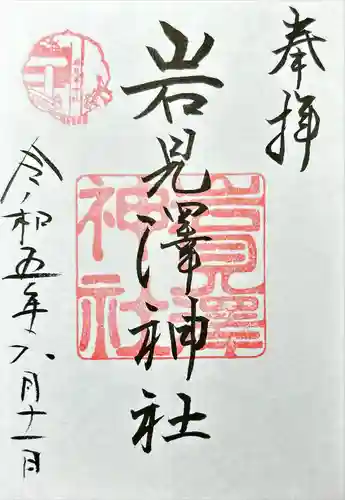 奉拝
岩見澤神社
岩見澤
神社
令和五年六月十一日